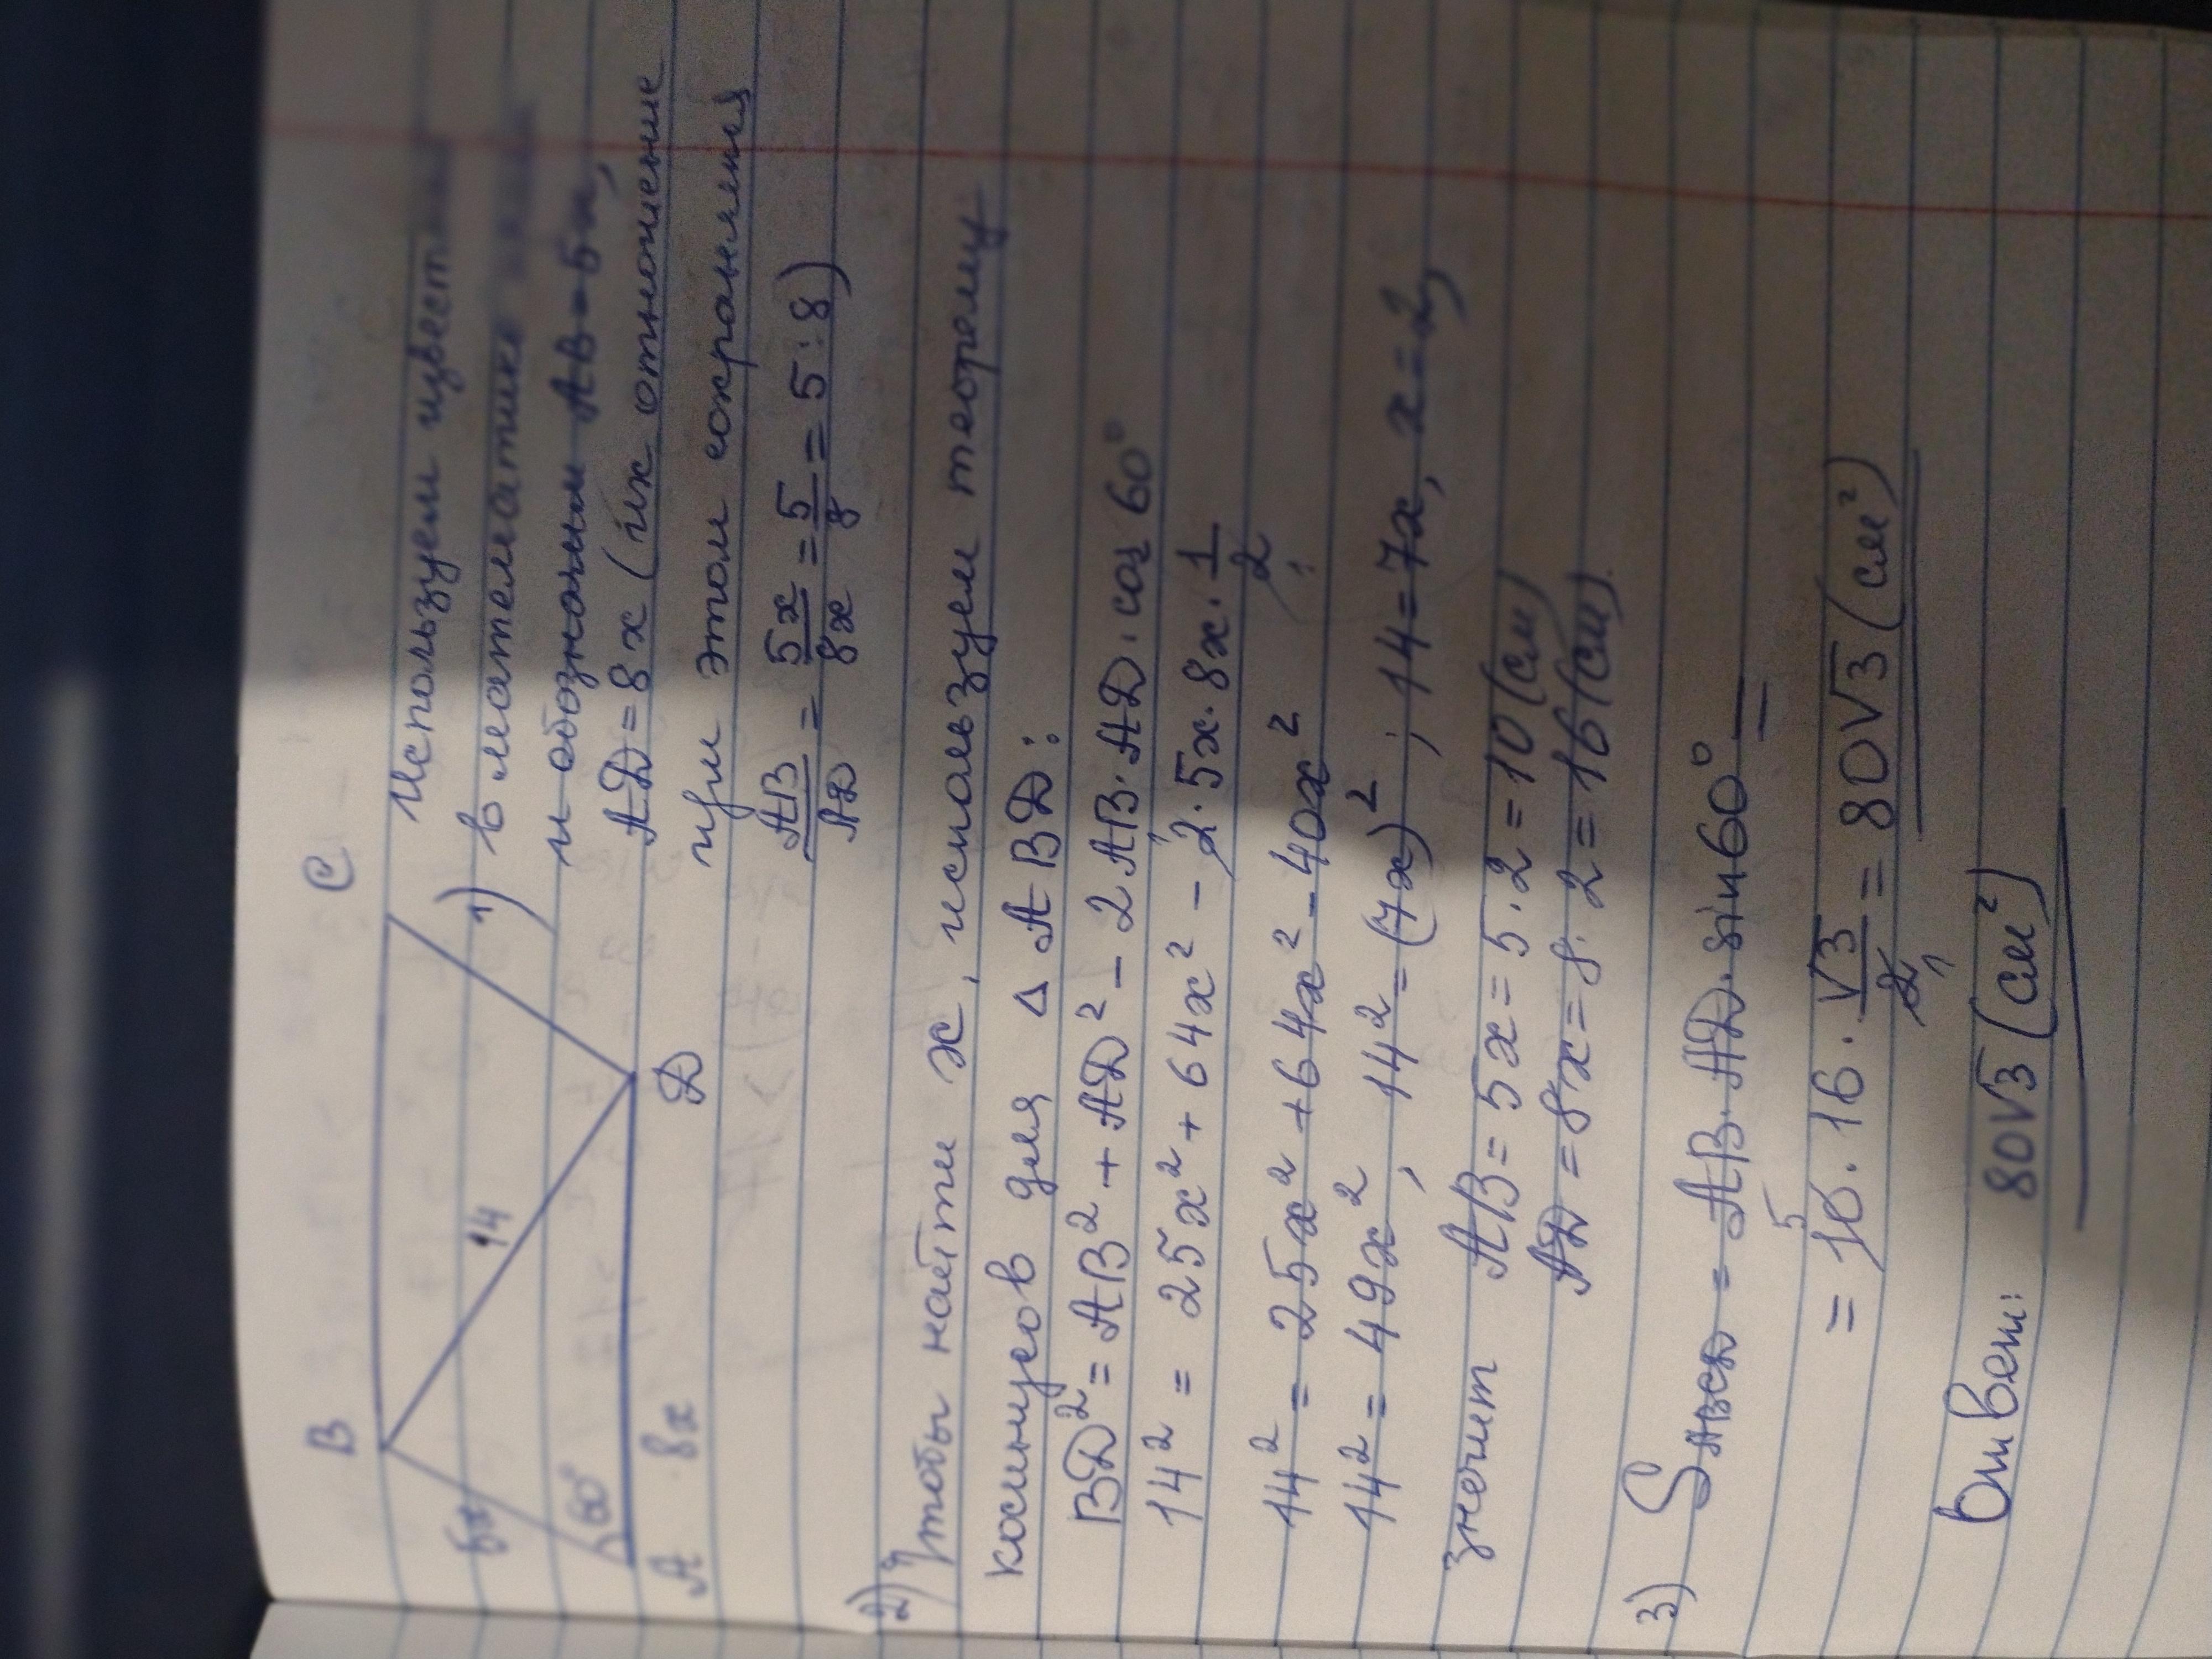 B C
14
5x
60°
A 8x D
Используем извест
1) в математике
и обозначим AB=5x,
AD=8x (их отношение
при этом сохраняется
AB/AD = 5x/8x = 5/8 = 5:8)
2) Чтобы найти x, используем теорему
косинусов для △ABD:
BD² = AB² + AD² - 2AB·AD·cos 60°
14² = 25x² + 64x² - 2·5x·8x·1/2
14² = 25x² + 64x² - 40x²;
14² = 49x², 14² = (7x)²; 14=7x, x=2,
значит AB = 5x = 5·2 = 10 (см)
AD = 8x = 8·2 = 16 (см).
3) SABCD = AB·AD·sin60° =
5 1
= 10·16·√3/2 = 80√3 (см²)
Ответ: 80√3 (см²)